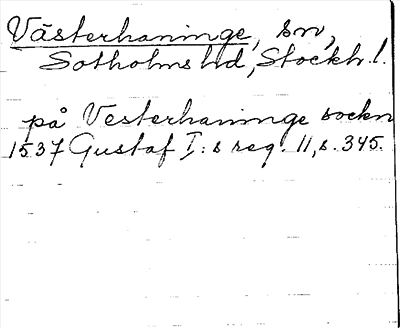 Västerhaninge, sn,
Sotholms hd, Stockh. l.
på Vesterhaninge sockn
1537 Gustaf I:s reg. 11, s. 345.